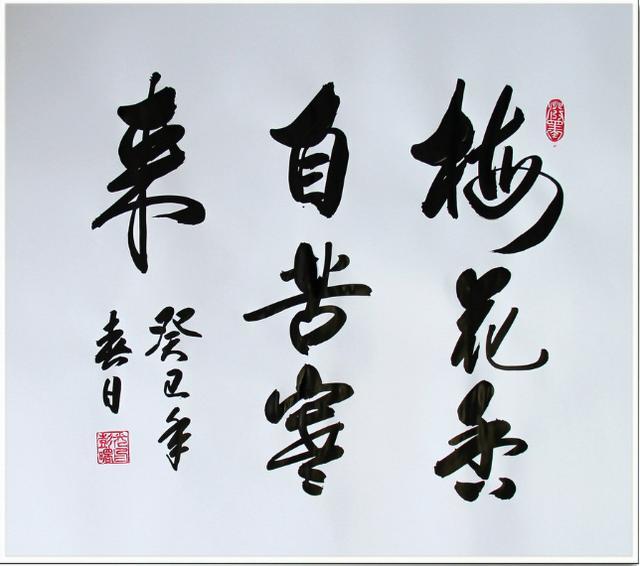 梅花香
自苦寒
来
癸巳年
春日